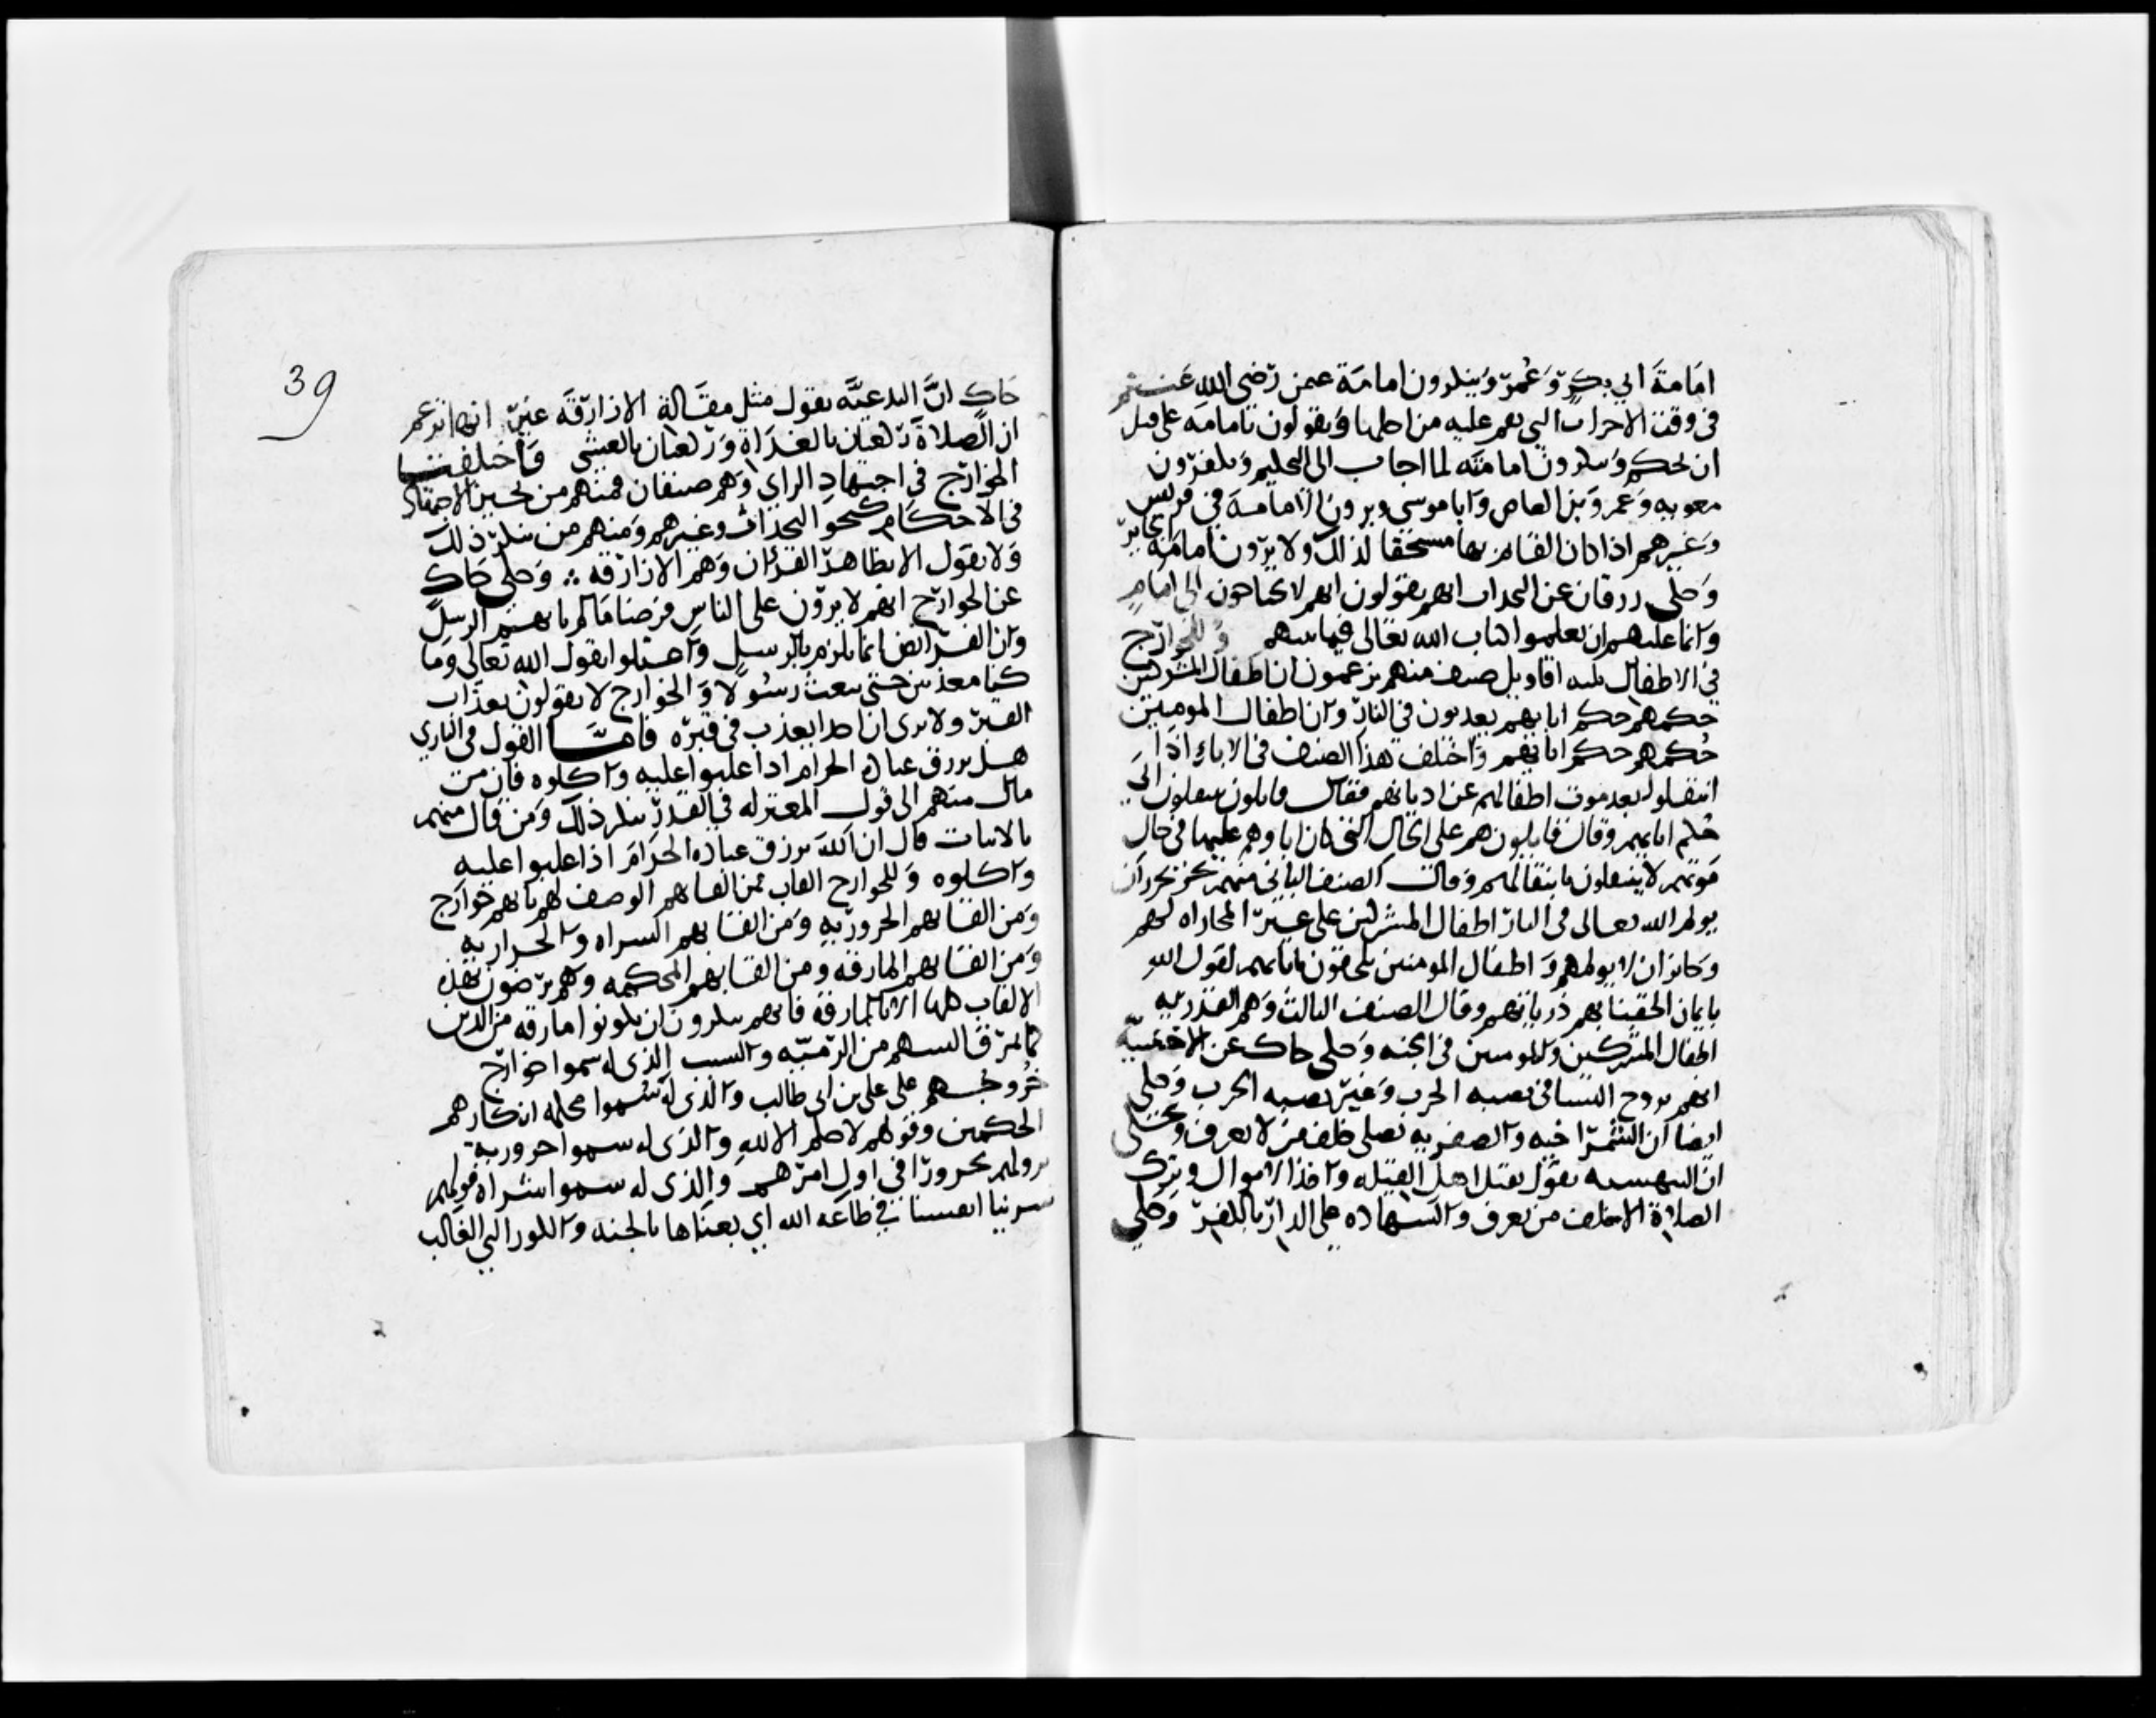 امامة ابي بكر وعمر وينكرون امامة عثمن رضى الله عنهم
فى وقت الاحداث التى نقم عليه من اجلها ويقولون بامامة على قبل
ان يحكم وينكرون امامته لما اجاب الى التحكيم ويكفرون
معويه وعمرو بن العاص وابا موسى ويرون ان الامامة فى قريش
وغيرهم اذا كان القائم بها مستحقا لذلك ولا يرون امامة الجاير
وحكى زرقان عن النجدات انهم يقولون انهم لا يحتاجون الى امام
وانما عليهم ان يعلموا كتاب الله تعالى فيما بينهم وللخوارج
فى الاطفال ثلثه اقاويل صنف منهم يزعمون ان اطفال المشركين
حكمهم حكم ابايهم يعذبون فى النار وان اطفال المومنين
حكمهم حكم ابايهم واختلف هذا الصنف فى الاباء اذا
انتقلوا بعد موت اطفالهم عن اديانهم فقال قايلون ينتقلون الى
حكم ابايهم وقال قايلون هم على الحال التى كان اباوهم عليها فى حال
موتهم لا ينتقلون بانتقالهم وقالت الصنف الثانى منهم يجوز ان
يولم الله تعالى فى النار اطفال المشركين على غير المجازاه لهم
وجايز ان لا يولمهم واطفال المومنين يلحقون بابايهم لقول الله
بايمان الحقنا بهم ذرياتهم وقال الصنف الثالث وهم القدريه
اطفال المشركين والمومنين فى الجنه وحكى حاك عن الاخنسيه
انهم تزوج النسا فى نصبه الحرب وغير نصبه الحرب وحكى
ايضا ان الشمراخيه والصفريه تصلى خلف من لا تعرف وحكى
ان البيهسيه تقول بقتل اهل القبله واخذ الاموال وترك
الصلاة الا خلف من تعرف والشهاده على الدار بالكفر وحكى
39
حاك ان البدعيه تقول مثل مقالة الازارقه غير انها تزعم
ان الصلاة ركعتان بالغداة وركعتان بالعشى واختلفت
الخوارج فى اجتهاد الراى وهم صنفان فمنهم من يجيز الاجتهاد
فى الاحكام كنحو النجدات وغيرهم ومنهم من ينكر ذلك
ولا يقول الا بظاهر القران وهم الازارقه ⁘ وحكى حاك
عن الخوارج انهم لا يرون على الناس فرضا ما لم ياتهم الرسل
وان الفرائض انما تلزم بالرسل واعتلوا بقول الله تعالى وما
كنا معذبين حتى نبعث رسولا والخوارج لا يقولون بعذاب
القبر ولا ترى ان احدا يعذب فى قبره فاما القول فى البارى
هل يرزق عباده الحرام اذا غلبوا عليه واكلوه فان من
مال منهم الى قول المعتزله فى القدر ينكر ذلك ومن قال منهم
بالاثبات قال ان الله يرزق عباده الحرام اذا غلبوا عليه
واكلوه وللخوارج القاب فمن القابهم الوصف لهم بانهم خوارج
ومن القابهم الحروريه ومن القابهم الشراه والحراريه
ومن القابهم المارقه ومن القابهم المحكمه وهم يرضون بهذه
الالقاب كلها الا بالمارقة فانهم ينكرون ان يكونوا مارقه من الدين
كما يمرق السهم من الرميه والسبب الذى له سموا خوارج
خروجهم على على بن ابى طالب والذى له سموا محكمه انكارهم
الحكمين وقولهم لا حكم الا لله والذى له سموا حروريه
نزولهم بحرورا فى اول امرهم والذى له سموا شراه قولهم
شرينا انفسنا فى طاعه الله اى بعناها بالجنه والكور التى الغالب